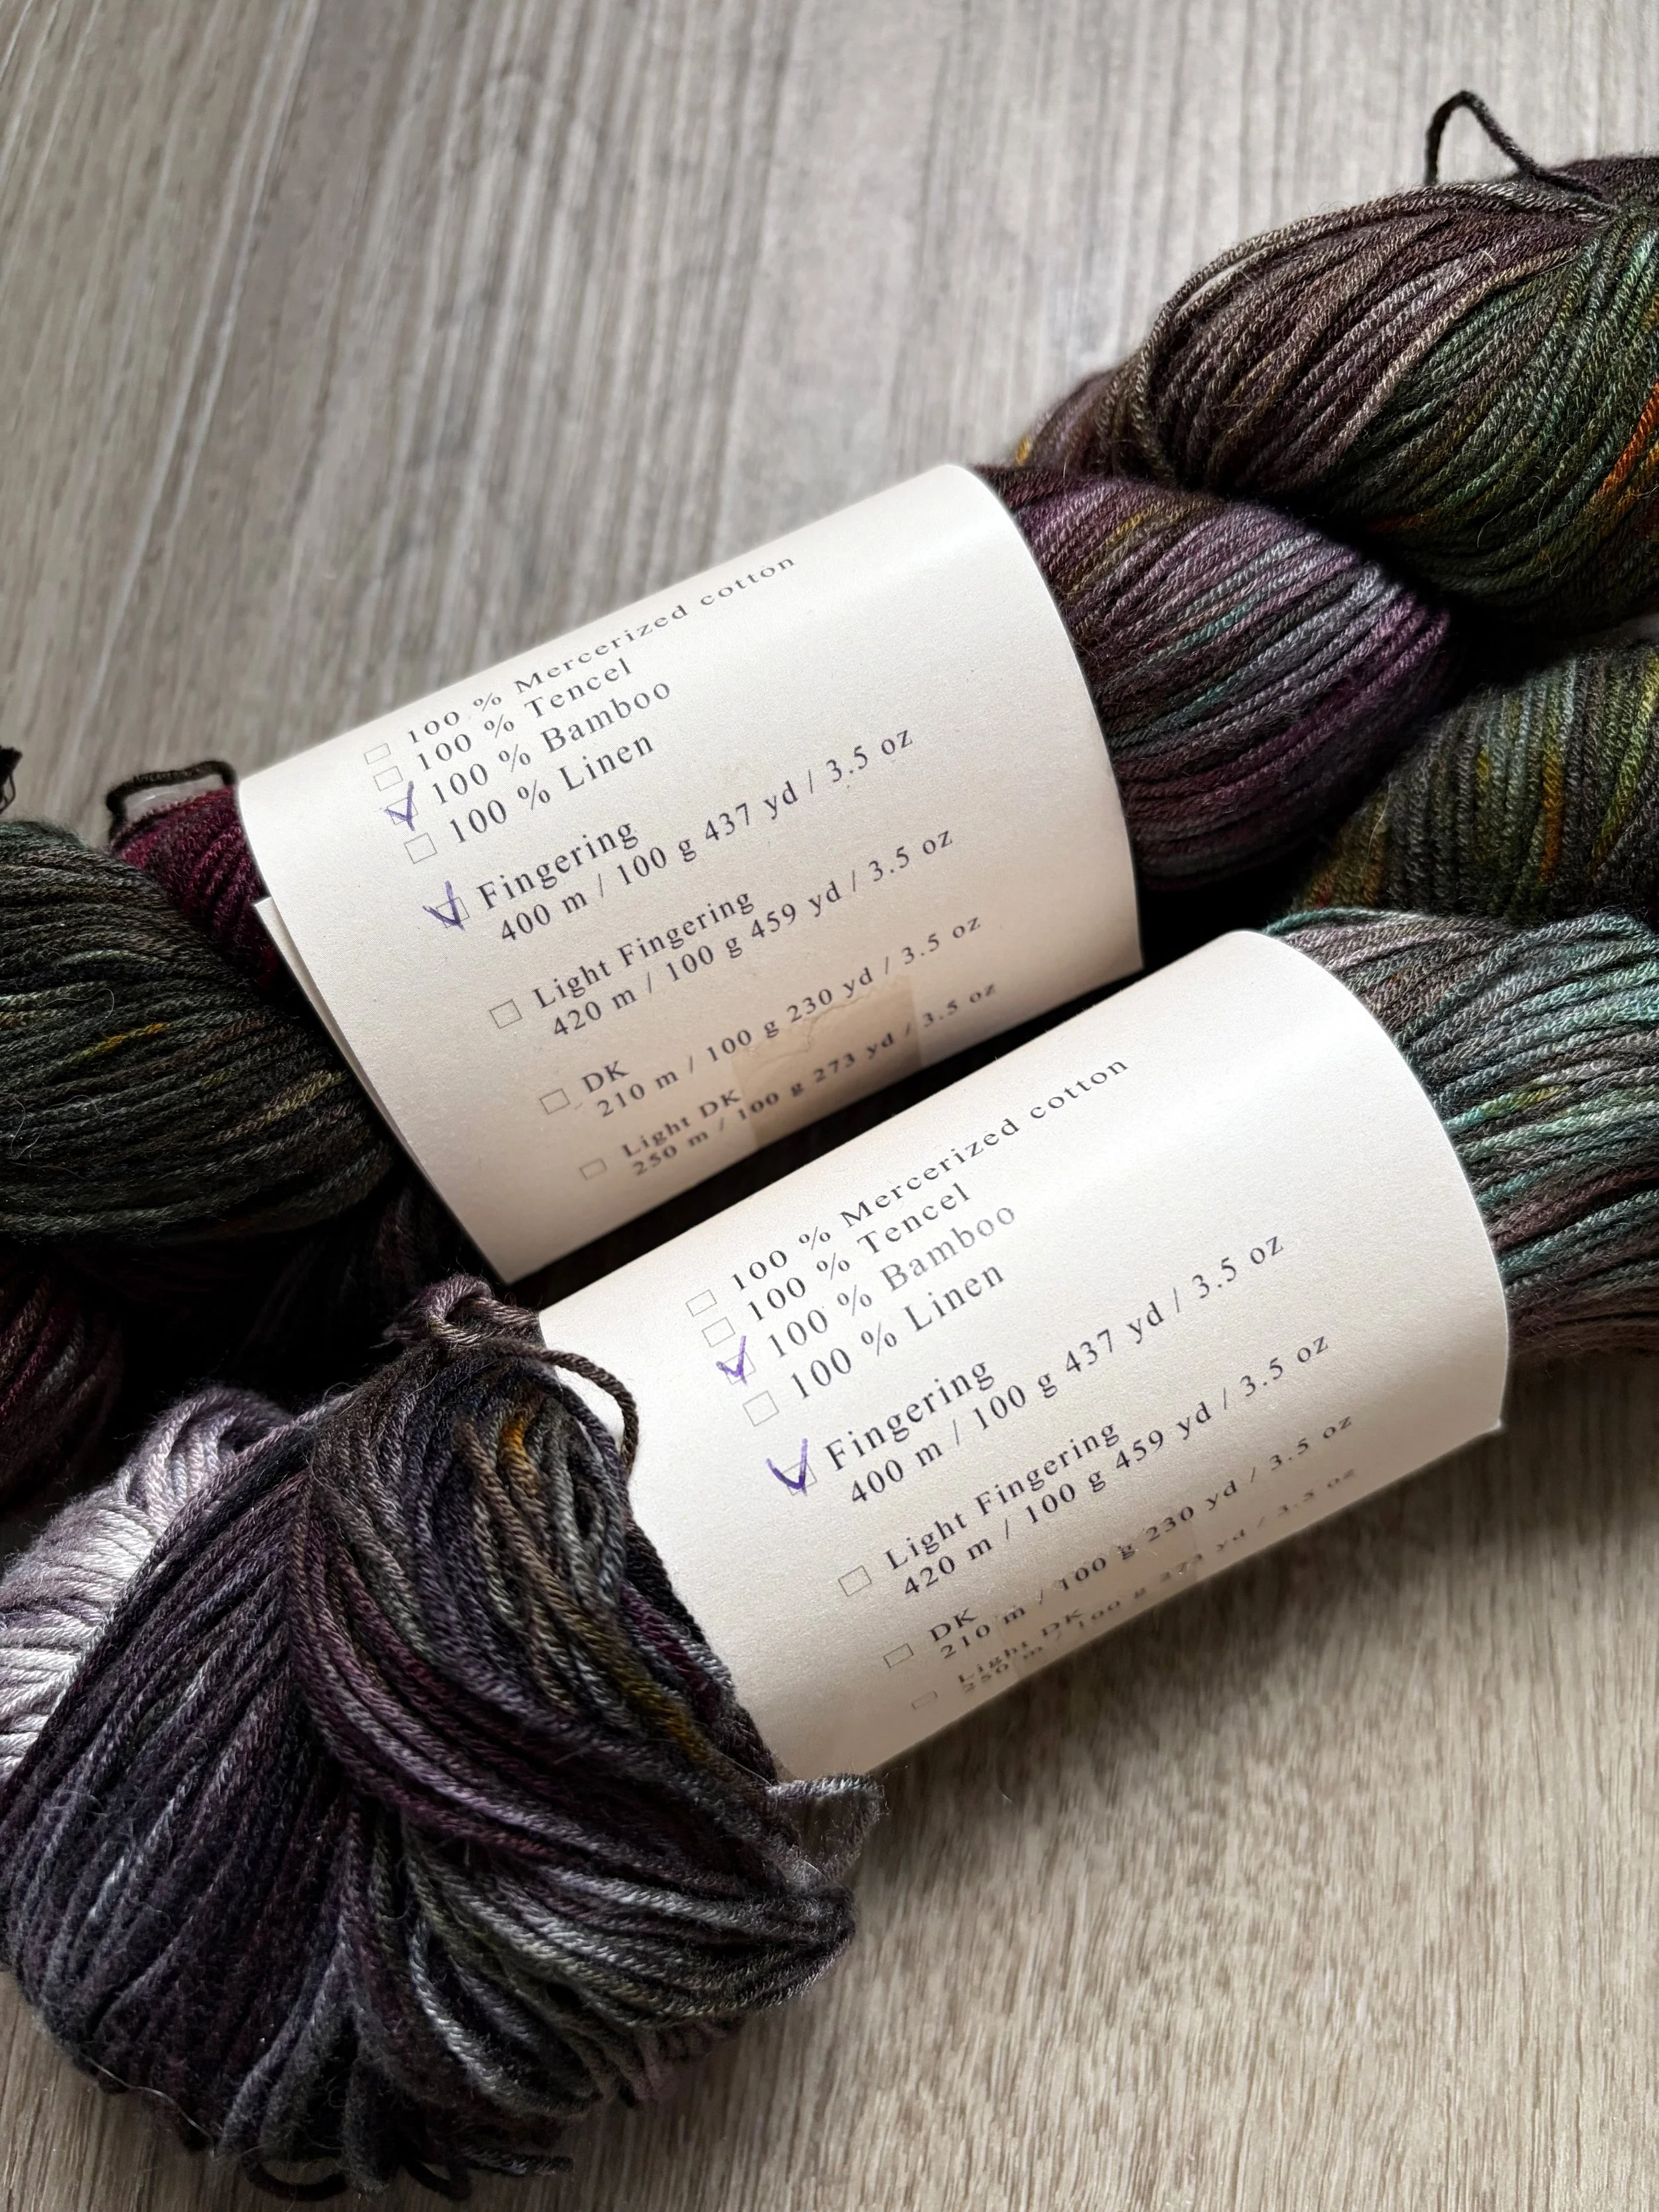 100 % Mercerized cotton
100 % Tencel
100 % Bamboo
100 % Linen
Fingering
400 m / 100 g 437 yd / 3.5 oz
Light Fingering
420 m / 100 g 459 yd / 3.5 oz
DK
210 m / 100 g 230 yd / 3.5 oz
Light DK
250 m / 100 g 273 yd / 3.5 oz
100 % Mercerized cotton
100 % Tencel
100 % Bamboo
100 % Linen
Fingering
400 m / 100 g 437 yd / 3.5 oz
Light Fingering
420 m / 100 g 459 yd / 3.5 oz
DK
210 m / 100 g 230 yd / 3.5 oz
Light DK
250 m / 100 g 273 yd / 3.5 oz